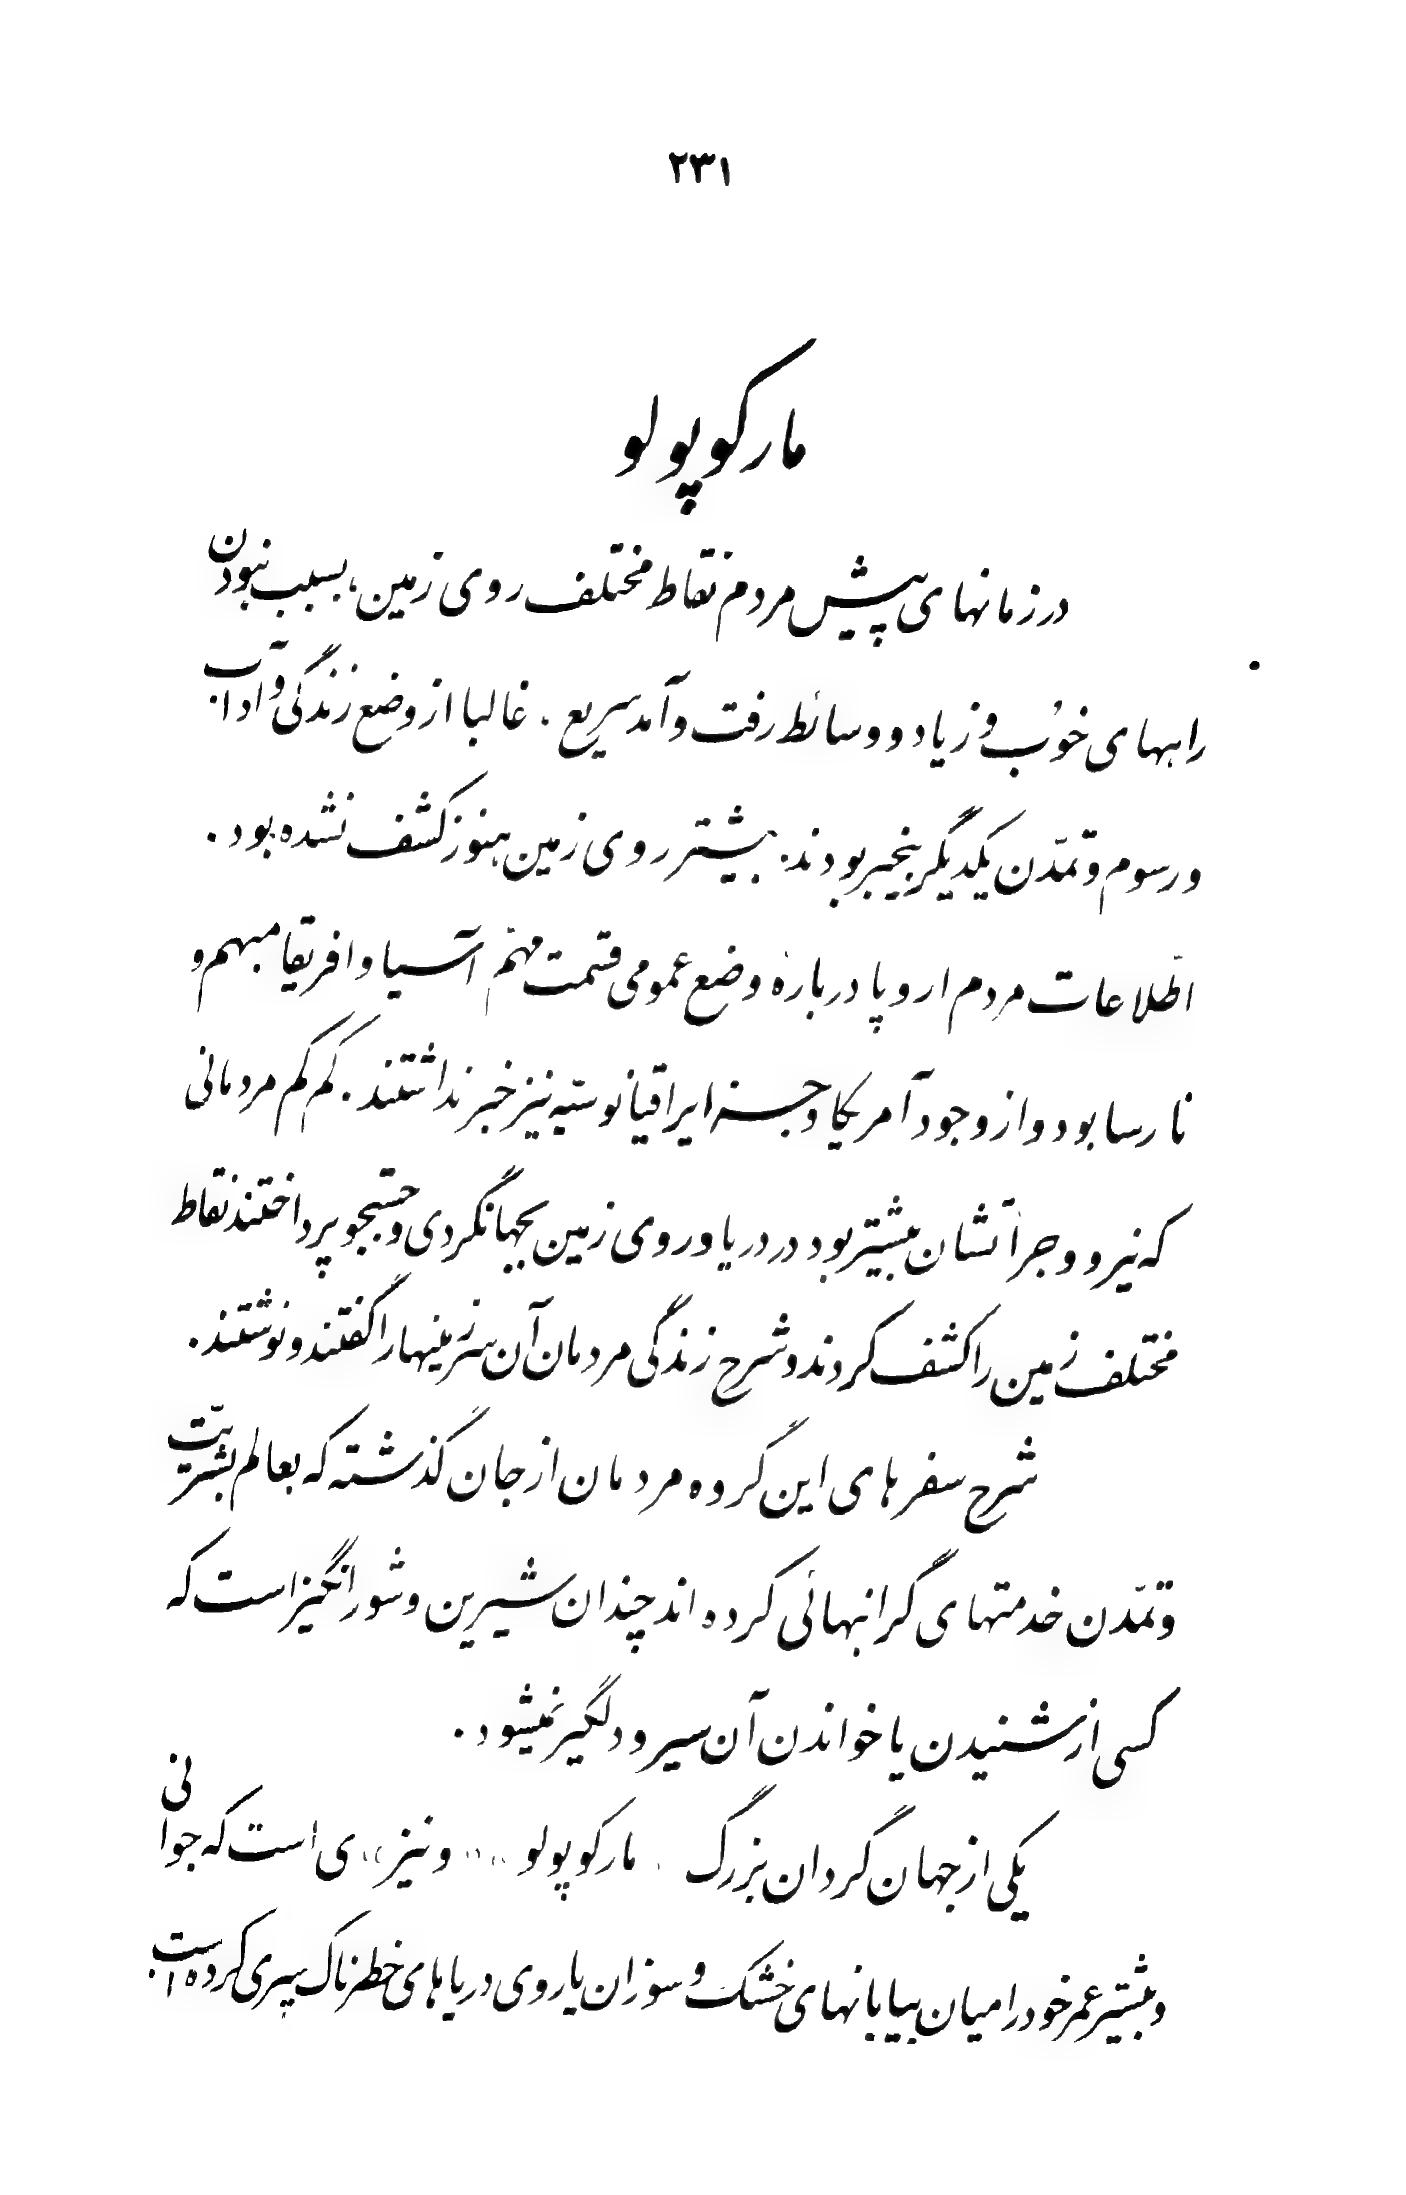 ۲۳۱
مارکوپولو
در زمانهای پیش مردم نقاط مختلف روی زمین، بسبب نبودن
راههای خوب و زیاد و وسائط رفت و آمد سریع . غالبا از وضع زندگی و آداب
و رسوم و تمدّن یکدیگر بیخبر بودند. بیشتر روی زمین هنوز کشف نشده بود .
اطّلاعات مردم اروپا درباره وضع عمومی قسمت مهّم آسیا و افریقا مبهم و
نارسا بود و از وجود آمریکا و جزایر اقیانوسیّه نیز خبر نداشتند . کم کم مردمانی
که نیرو و جرأتشان بیشتر بود در دریا و روی زمین بجهانگردی و جستجو پرداختند نقاط
مختلف زمین را کشف کردند و شرح زندگی مردمان آن سرزمینها را گفتند و نوشتند .
شرح سفرهای این گروه مردمان از جان گذشته که بعالم بشریّت
و تمدّن خدمتهای گرانبهائی کرده اند چندان شیرین و شورانگیز است که
کسی از شنیدن یا خواندن آن سیر و دلگیر نمیشود .
یکی از جهان گردان بزرگ مارکوپولو «ونیز» ی است که جوانی
و بیشتر عمر خود را میان بیابانهای خشک و سوزان یا روی دریاهای خطرناک سپری کرده است .